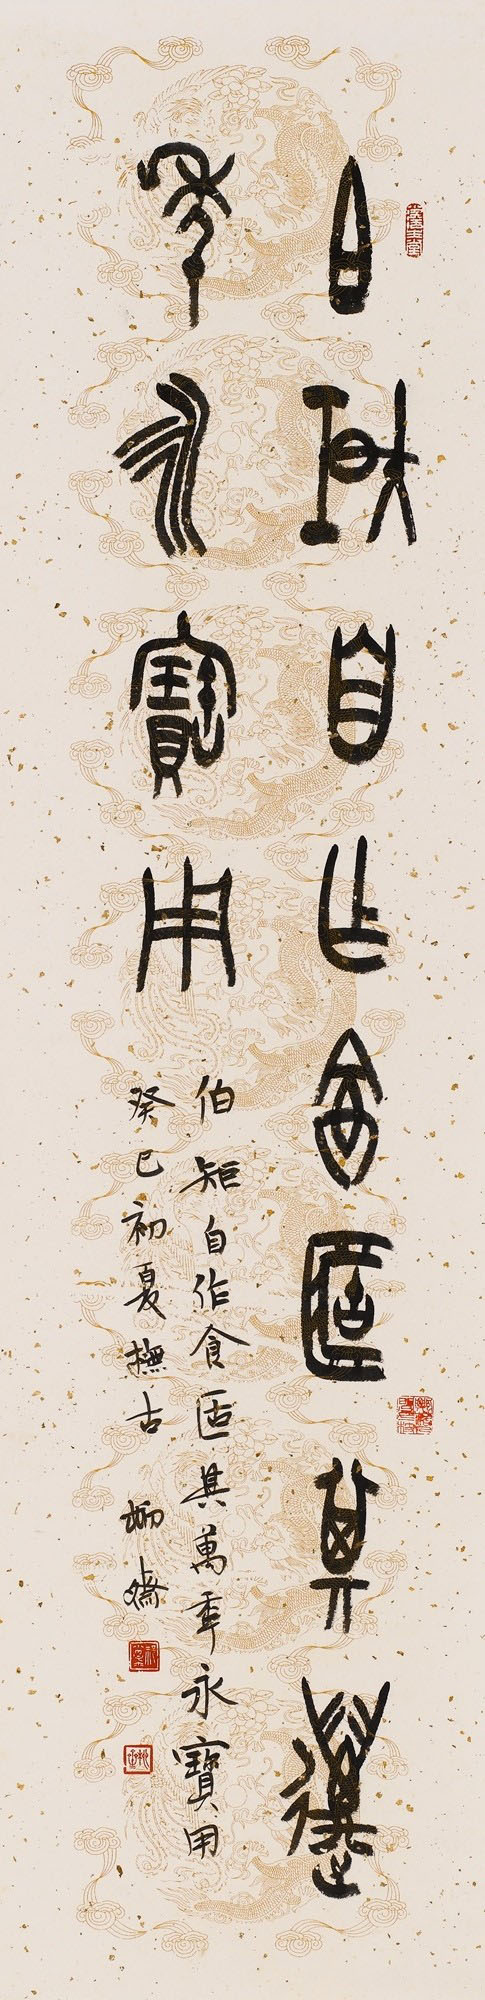 白矩自乍食匼其邁
年永寶用
伯矩自作食匼其萬年永寶用
癸巳初夏撫古 拗齋